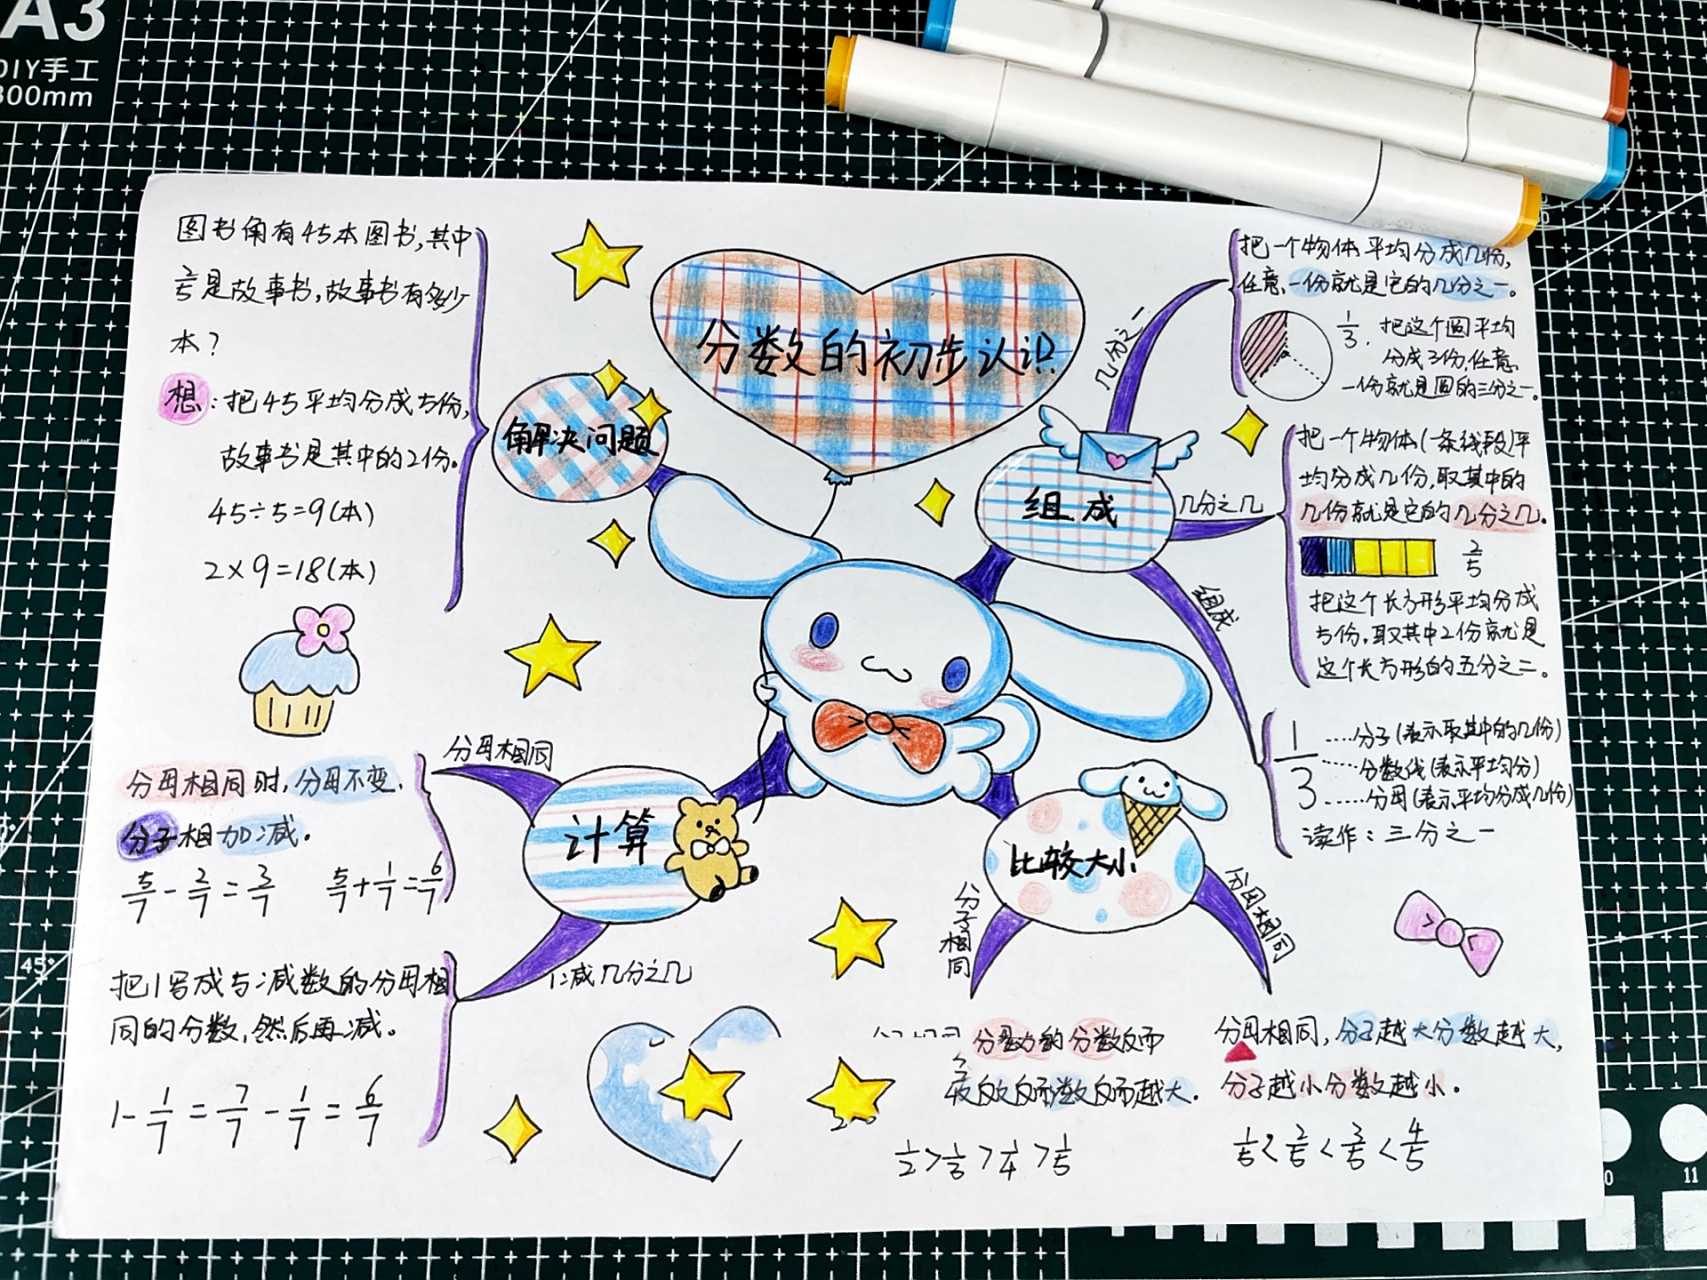 A3
DIY手工
300mm
分数的初步认识
解决问题
图书角有45本图书,其中
2/5是故事书,故事书有多少
本?
想:把45平均分成5份,
故事书是其中的2份。
45÷5=9(本)
2×9=18(本)
组成
几分之一
把一个物体平均分成几份,
任意一份就是它的几分之一。
1/3. 把这个圆平均
分成3份,任意
一份就是圆的三分之一。
几分之几
把一个物体(一条线段)平
均分成几份,取其中的
几份就是它的几分之几。
2/5
把这个长方形平均分成
5份,取其中2份就是
这个长方形的五分之二。
组成
1/3
分子(表示取其中的几份)
分数线(表示平均分)
分母(表示平均分成几份)
读作:三分之一
计算
分母相同
分母相同时,分母不变,
分子相加减。
5/7-2/7=3/7 5/7+1/7=6/7
1减几分之几
把1写成与减数的分母相
同的分数,然后再减。
1-1/7=7/7-1/7=6/7
比较大小
分子相同
的分数反而
数反而越大。
1/2>1/3>1/4>1/5
分母相同
分母相同,分子越大分数越大,
分子越小分数越小。
1/5<2/5<3/5<4/5
45°
11